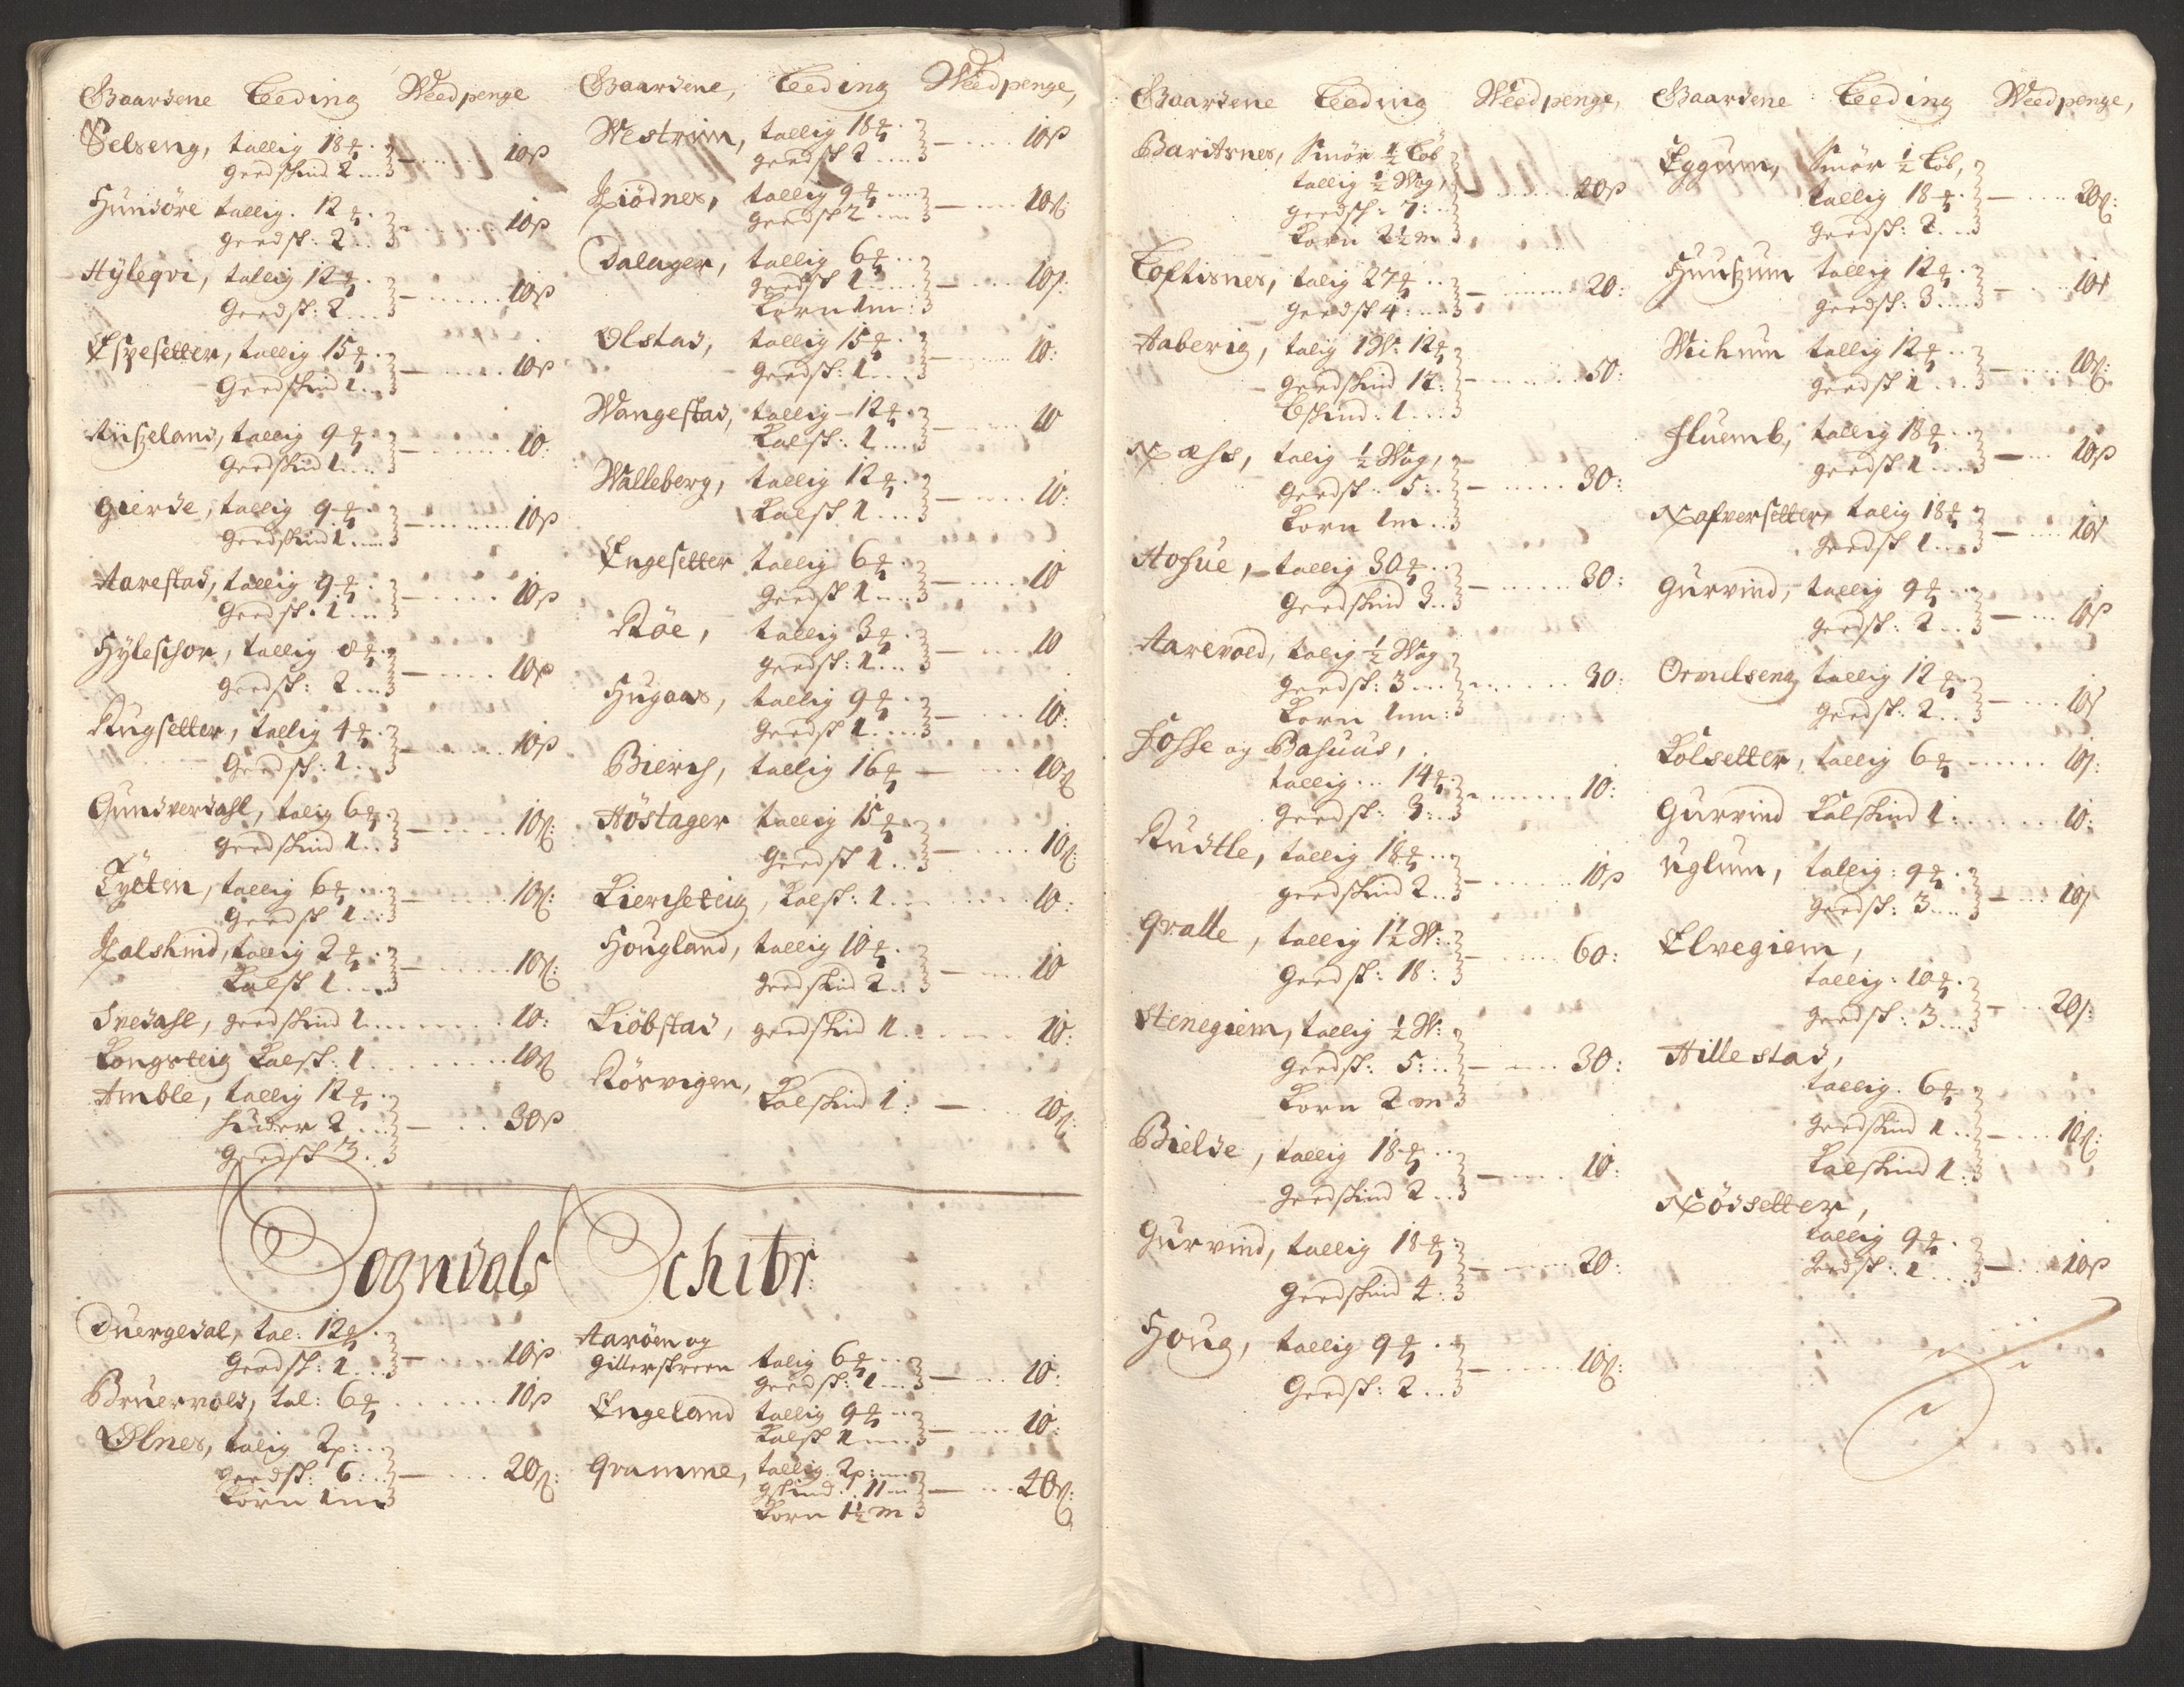 Gaardene Leeding Weedpenge
Selseng, tallig 18 ℔
geedskind 2 — 10 ß
Hundöre tallig. 12 ℔
geedsk: 2 — 10 ß
Hÿleqvi, tallig 12 ℔
Geedsk: 2 — 10 ß
Espesetter, tallig 15 ℔
Geedskind 1 — 10 ß
tallig 9 ℔
Geedskind 1 — 10:
Gierde, tallig 9 ℔
Geedskind 1 — 10 ß
Aarestad, tallig 9 ℔
Geedsk: 1 — 10 ß
tallig 8 ℔
geedsk: 2 — 10 ß
Rugsetter, tallig 4 ℔
Geedsk: 1 — 10 ß
Gundverdahl, talig 6 ℔
geedskind 1 — 10 ß:
tallig 6 ℔
Geedsk 1 — 10 ß:
tallig 2 ℔
Kalfsk 1 — 10 ß:
Svedahl, geedskind 1 — 10:
Kongsteig Kalfsk: 1 — 10 ß
Amble, tallig 12 ℔
huder 2
Geedsk 3 — 30 ß
Gaardene, Leeding Weedpenge,
Westrim, tallig 18 ℔
geedsk 2 — 10 ß
Niödnes, tallig 9 ℔
geedsk 2 — 10 ß:
Dalager, tallig 6 ℔
geedsk 1
Korn 1 m: — 10 ß:
Olstad, tallig 15 ℔
geedsk: 1 — 10:
Wangestad, tallig 12 ℔
Kalfsk: 1 — 10
Walleberg, tallig 12 ℔
Kalfsk 1 — 10:
Engesetter tallig 6 ℔
Geedsk 1 — 10
Röe, tallig 3 ℔
geedsk: 1 — 10
Hugaas, tallig 9 ℔
Geedsk 1 — 10:
Bierch, tallig 16 ℔ — 10 ß
Höstager tallig 15 ℔
Geedsk 1 — 10 ß:
Lierheteig, Kalfsk: 1 — 10:
Hougland, tallig 10 ℔
geedskind 2 — 10
Liöbstad, geedskind 1 — 10:
Rörvigen,
Kalfskind 1: — 10 ß:
Sogndals Schibr:
Duergedal, tal: 12 ℔
Geedsk: 1 — 10 ß
Bruervold, tal: 6 ℔ — 10 ß
Ølnes, talig 2 p:
geedsk: 6:
Korn 1 m — 20 ß:
Aaröen og
Gillerskreen talig 6 ℔
geedsk: 1 — 10:
Engeland tallig 9 ℔
Kalfsk 1 — 10:
Qvamme, tallig. 2 p:
gskind. 11
Korn 1½ m — 40 ß:
Gaardene Leeding Weedpenge,
Baritsnes, Smör ½ Löb
tallig ½ Wog,
geedsk: 7:
Korn 2½ m — 40 ß
Loftisnes, talig 27 ℔
geedsk 4: — 20:
Aaberig, talig 1 W: 12 ℔
geedskind 12:
1 — 50:
Næss, talig ½ Wog,
geedsk: 5:
Korn 1 m — 30:
Hofue, tallig 30 ℔
geedskind 3 — 30:
Aarevold, talig ½ Wog
geedsk: 3
Korn 1 m: — 30:
Fosse og Bahuus,
tallig 14 ℔
geedsk: 3: — 10:
Rudtle, tallig 18 ℔
geedskind 2 — 10 ß
Qvalle, tallig 1½ W:
Geedsk: 18: — 60:
Stenegiem, tallig ½ W:
geedsk: 5:
Korn 2 m — 30:
Bielde, tallig 18 ℔
geedskind 2 — 10:
Gurvind, tallig 18 ℔
geedskind 4: — 20:
Houg, tallig 9 ℔
Geedsk: 2 — 10 ß:
Gaardene Leeding Weedpenge,
Eggum, Smör ½ Löb,
tallig 18 ℔
geedsk: 2 — 20 ß:
Huusum tallig 12 ℔
geedsk: 3 — 10 ß
Wichum tallig 12 ℔
geedsk 1 — 10 ß:
Fluemb, tallig 18 ℔
geedsk 1 — 10 ß
Nafversetter, talig 18 ℔
geedsk 1 — 10 ß
Gurvind, tallig 9 ℔
geedsk: 2 — 10 ß
Ormelseng tallig 12 ℔
geedsk: 2 — 10 ß
Kolsetter, tallig 6 ℔ — 10 ß:
Gurvind Kalfskind 1: — 10:
Uglum, tallig: 9 ℔
geedsk: 3 — 10 ß
Elvegiem,
tallig: 10 ℔
geedsk: 3 — 20 ß:
Hillestad,
tallig. 6 ℔
geedskind 1
Kalfskind 1 — 10 ß:
Nödsetter,
tallig 9 ℔
Geedsk: 1 — 10 ß